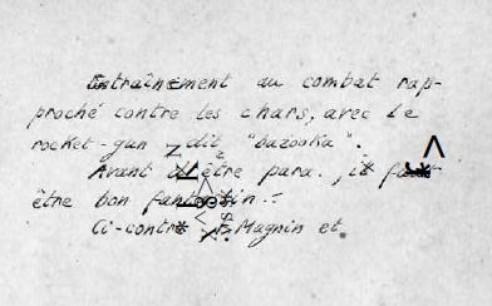 Entraînement au combat rap-
proché contre les chars, avec le
rocket-gun dit "bazooka".
Avant être para. , il
être bon
Ci-contre Magnin et